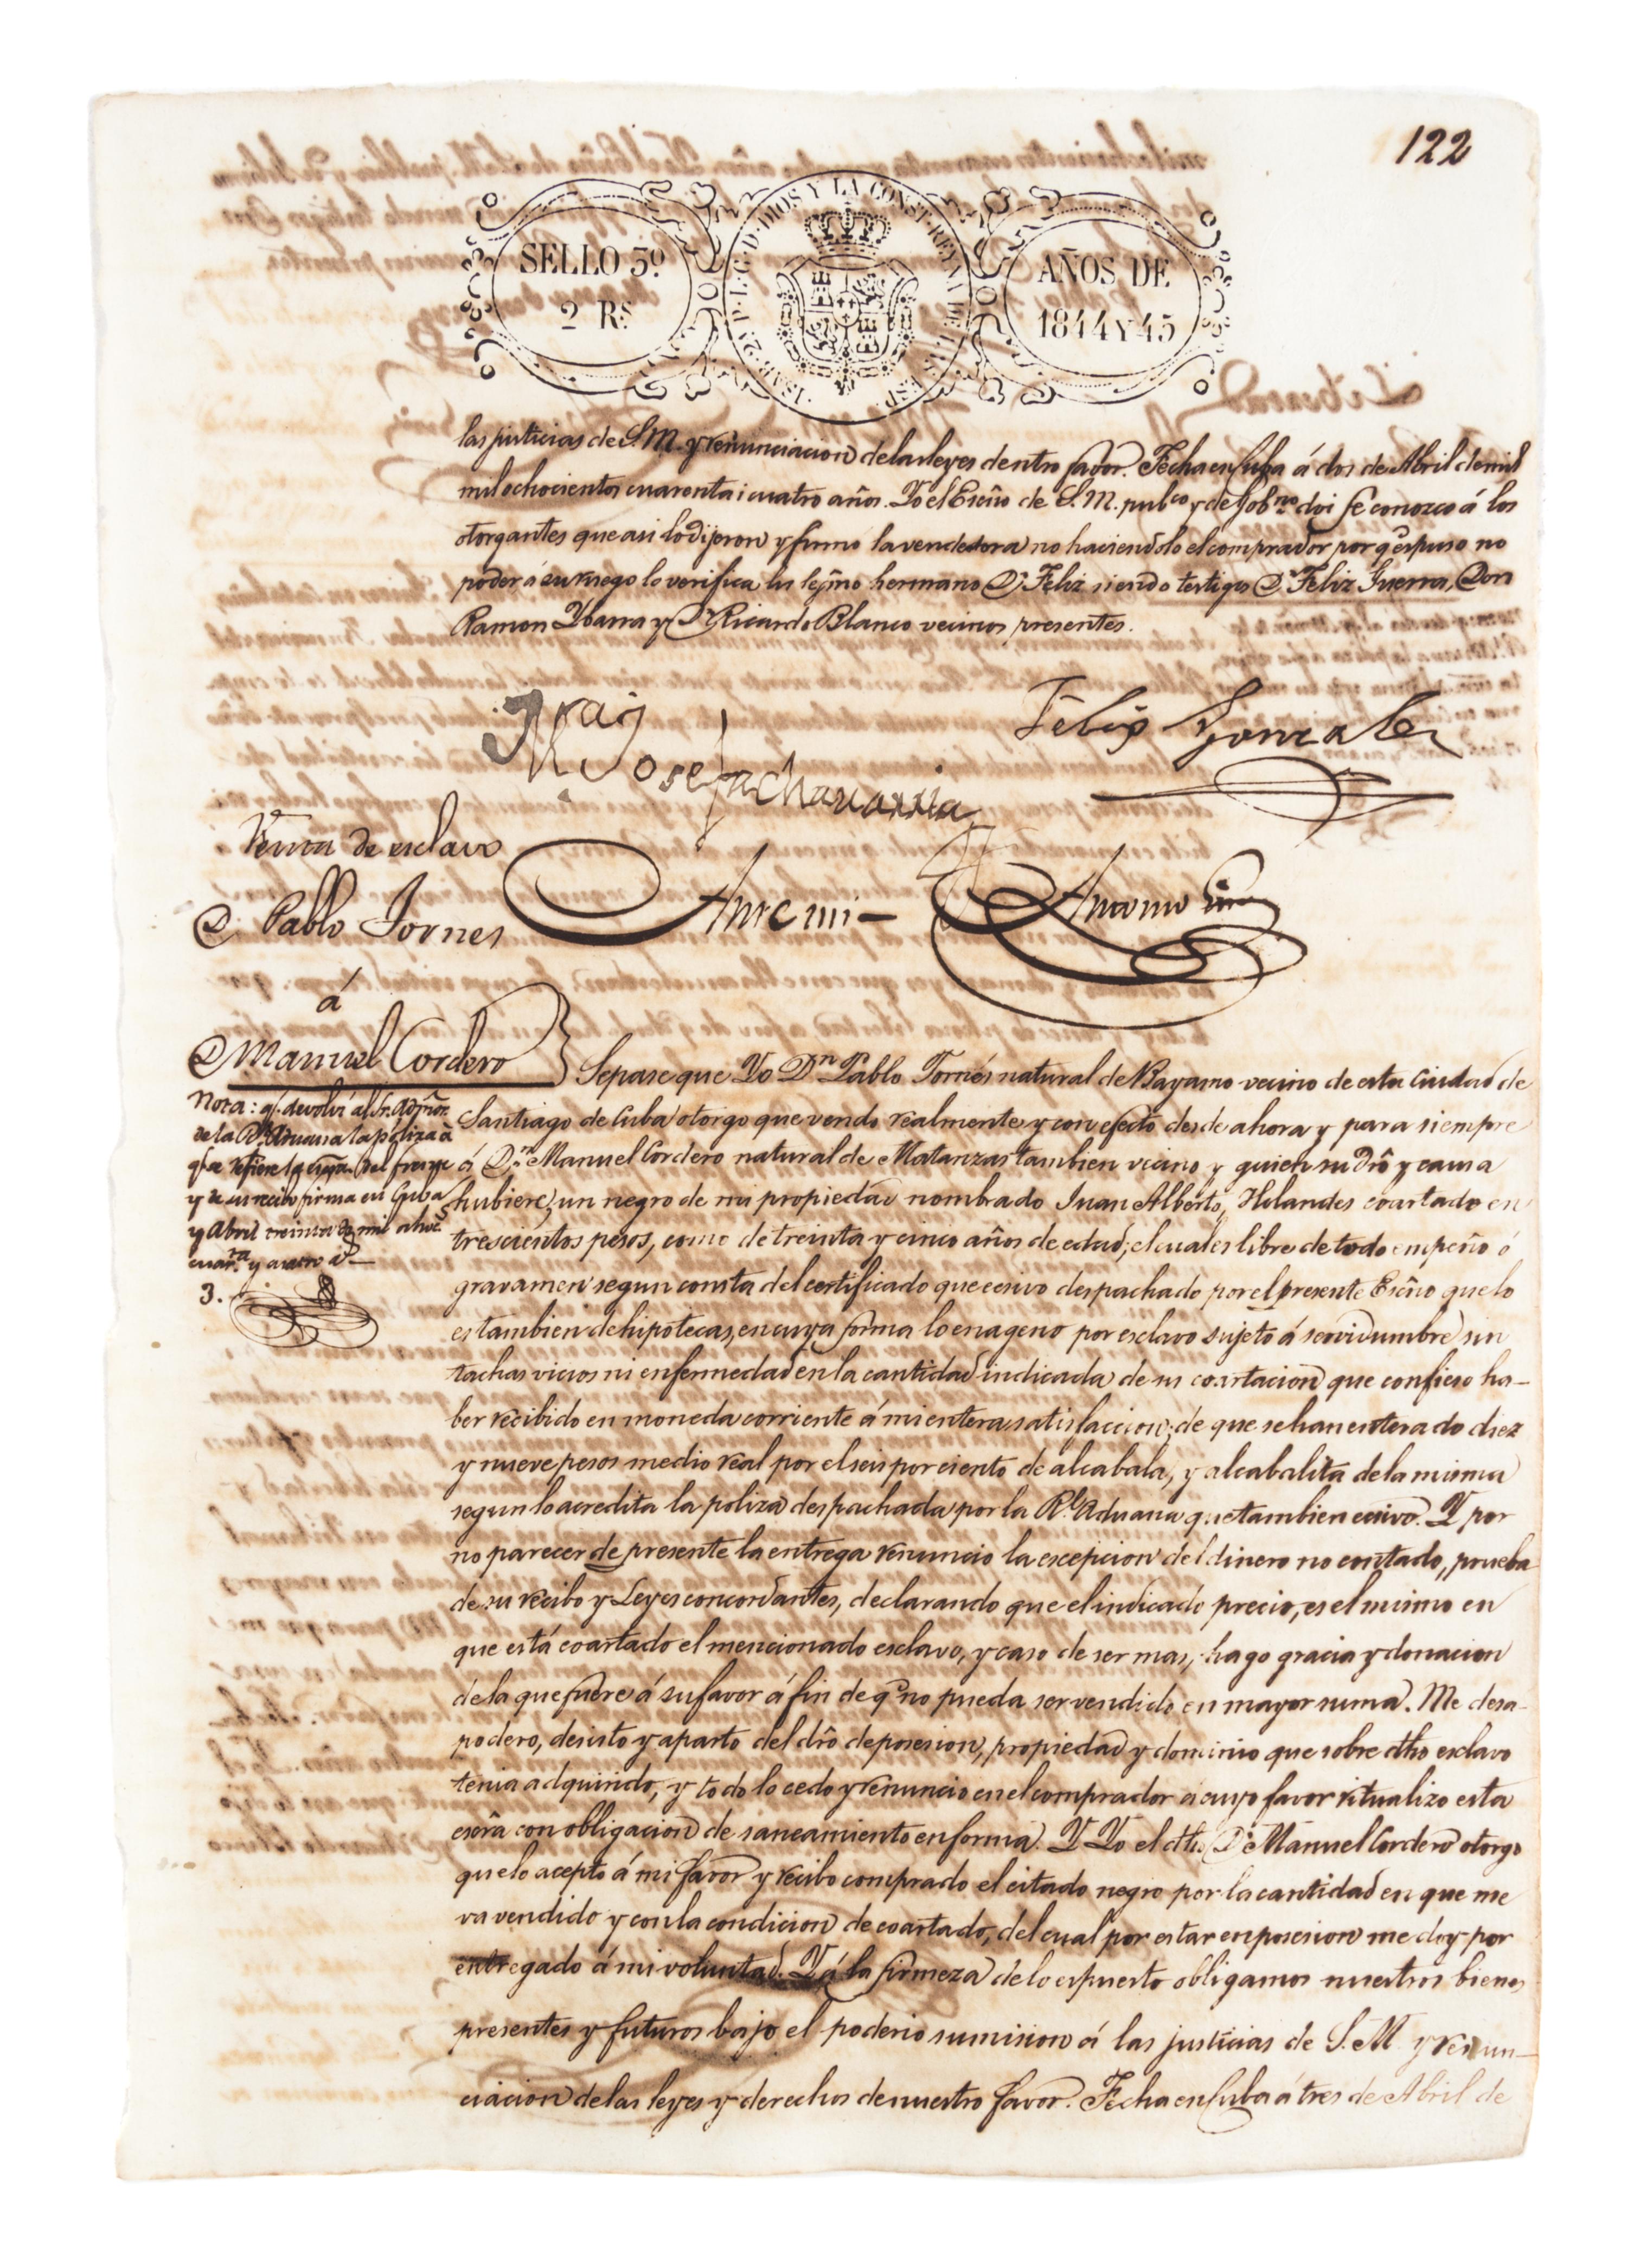 122
SELLO 3º
2 Rs
ISAB. 2ª P. L. G. D. DIOS Y LA CONST. REYNA DE LAS ESP.
AÑOS DE
1844 Y 45
las justicias de S.M. y renunciacion delas leyes dentro favor. Fecha en Cuba á dos de Abril demil
mil ochocientos cuarenta i cuatro años. Yo el Escño de S. M. pubco y de Gobno doi fe conozco á los
otorgantes que asi lo dijeron y firmo la vendedora no haciendolo el comprador por q espuso no
poder, á su ruego lo verifica su legmo hermano Dn Feliz siendo testigos Dn Feliz Guerra, Don
Ramon Ybarra y Dn Ricardo Blanco vecinos presentes.
Josefa chavarria
Felix Gonzalez
Venta de esclavo
D. Pablo Tornes
á
D Manuel Cordero
Ante mi
Antonio
Nota: q. devolví al Sr. Admor.
de la Rl Aduana la póliza á
q. se refiere la
y de su recibo firma en Cuba
y Abril treinta de mil ochocs
cuarta y cuatro as
3.
Sepase que Yo Dn Pablo Tornés natural de Bayamo vecino de esta Ciudad de
Santiago de Cuba otorgo que vendo realmente y con efecto desde ahora y para siempre
á Dn Manuel Cordero natural de Matanzas tambien vecino y quien su dro y causa
hubiere, un negro de mi propiedad nombrado Juan Alberto, Holandes coartado en
trescientos pesos, como de treinta y cinco años de edad, el cual es libre de todo empeño ó
gravamen segun consta del certificado que ecsivo despachado por el presente Escño que lo
es tambien de hipotecas, en cuya forma lo enageno por esclavo sujeto á servidumbre sin
tachas vicios ni enfermedad en la cantidad indicada de su coartacion que confieso ha-
ber recibido en moneda corriente á mi entera satisfaccion; de que se han enterado diez
y nueve pesos medio real por el seis por ciento de alcabala, y alcabalita de la misma
segun lo acredita la poliza despachada por la Rl Aduana que tambien ecsivo. Y por
no parecer de presente la entrega renuncio la escepcion del dinero no contado, prueba
de su recibo y Leyes concordantes, declarando que el indicado precio, es el mismo en
que está coartado el mencionado esclavo, y caso de ser mas, hago gracia y donacion
de la que fuere á su favor á fin de q no pueda ser vendido en mayor suma. Me desa-
podero, desisto y aparto del dro de posesion, propiedad y dominio que sobre dho esclavo
tenia adquirido, y todo lo cedo y renuncio en el comprador á cuyo favor ritualizo esta
escra con obligacion de saneamiento en forma. Y Yo el dho Dn Manuel Cordero otorgo
que lo acepto á mi favor y recibo comprado el citado negro por la cantidad en que me
va vendido y con la condicion de coartado, del cual por estar en posesion me doy por
entregado á mi voluntad. Y á la firmeza de lo espuesto obligamos nuestros bienes
presentes y futuros bajo el poderio sumision á las justicias de S. M y renun-
ciacion de las leyes y derechos de nuestro favor. Fecha en Cuba á tres de Abril de